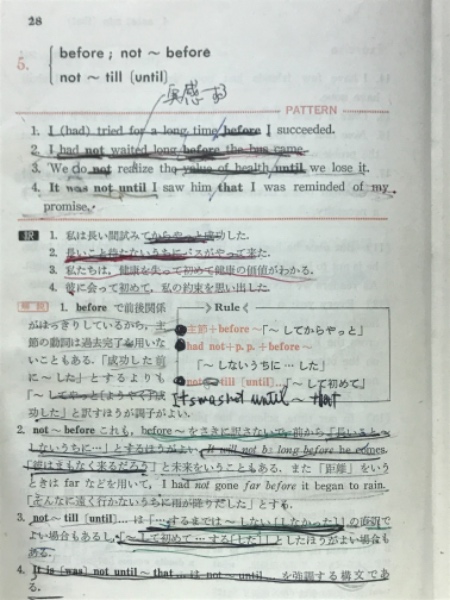 28
5.
before ; not ~ before
not ~ till (until)
実感する
PATTERN
1. I (had) tried for a long time before I succeeded.
2. I had not waited long before the bus came.
3. We do not realize the value of health until we lose it.
4. It was not until I saw him that I was reminded of my
promise.
訳 1. 私は長い間試みてからやっと成功した.
2. 長いこと待たないうちにバスがやって来た.
3. 私たちは, 健康を失って初めて健康の価値がわかる.
4. 彼に会って初めて, 私の約束を思い出した.
解説 1. before で前後関係
がはっきりしているから, 主
節の動詞は過去完了を用いな
いこともある.「成功した前
に～した」とするよりも
「～してやっと[ようやく]成
功した」と訳すほうが調子がよい.
Rule
主節+before ~「～してからやっと」
had not+p.p.+before ~
「～しないうちに…した」
not ~ till (until)...「～して初めて」
It was not until ~ that
2. not ~ before これも, before ~ をさきに訳さないで前から「長いこと～
しないうちに…」とするほうがよい. It will not be long before he comes.
「彼はまもなく来るだろう」と未来をいうこともある. また「距離」をいう
ときは far などを用いて, I had not gone far before it began to rain.
「そんなに遠く行かないうちに雨が降りだした」とする.
3. not ~ till (until)... は「…するまでは～しない[しなかった]」の直訳で
よい場合もあるし,「～して初めて…する[した]」としたほうがよい場合も
ある.
4. It is (was) not until ~ that... は not ~ until... を強調する構文であ
る.